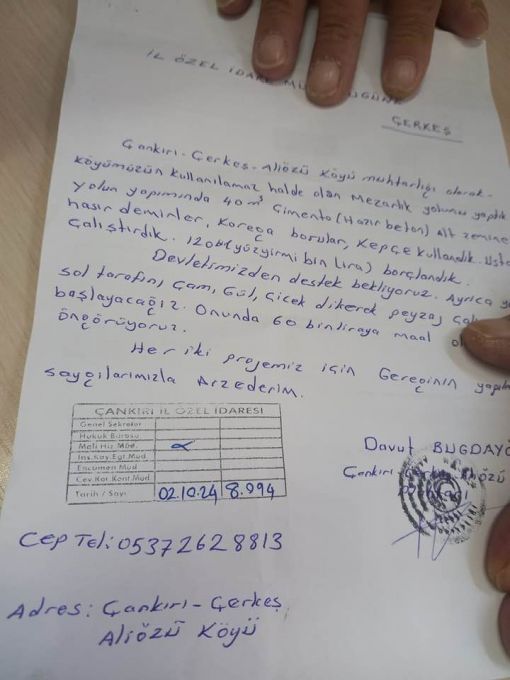 İL ÖZEL İDARE
ÇERKEŞ
Çankırı-Çerkeş-Aliözü Köyü muhtarlığı olarak
Köyümüzün kullanılamaz halde olan Mezarlık yolunu yaptık
yolun yapımında 40 m³ Çimento (Hazır beton) Alt zemine
hasır demirler, Korega borular, Kepçe kullandık. Usta
Çalıştırdık. 120bt(yüzyirmi bin lira) borçlandık.
Devletimizden destek bekliyoruz. Ayrıca
sol tarafını, Çam, Gül, Çiçek dikerek peyzaj
başlayacağız. Onunda 60 binliraya maal
öngörüyoruz.
Her iki projemiz için Gereğinin
saygılarımızla Arzederim.
ÇANKIRI İL ÖZEL İDARESİ
Genel Sekreter
Hukuk Bürosu
Mali Hiz. Müd.
İns. Kay. Eğt. Müd.
Encümen Müd.
Çev. Kor. Kont. Müd.
Tarih / Sayı 02.10.24 8.994
Davut BUGDAYO
Çankırı-Çerkeş Aliözü
Cep Tel: 05372628813
Adres: Çankırı-Çerkeş
Aliözü Köyü